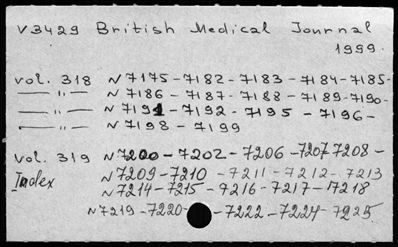 V3429 British Medical Journal
1999.
vol. 318 N 7175 - 7182 - 7183 - 7184 - 7185 -
—— " —— N 7186 - 7187 - 7188 - 7189 - 7190 -
—— " —— N 7191 - 7192 - 7195 - 7196 -
—— " —— N 7198 - 7199
vol. 319 N 7200 - 7202 - 7206 - 7207 7208 -
Index N 7209 - 7210 - 7211 - 7212 - 7213
N 7214 - 7215 - 7216 - 7217 - 7218
N 7219 - 7220 - - 7222 - 7224 - 7225